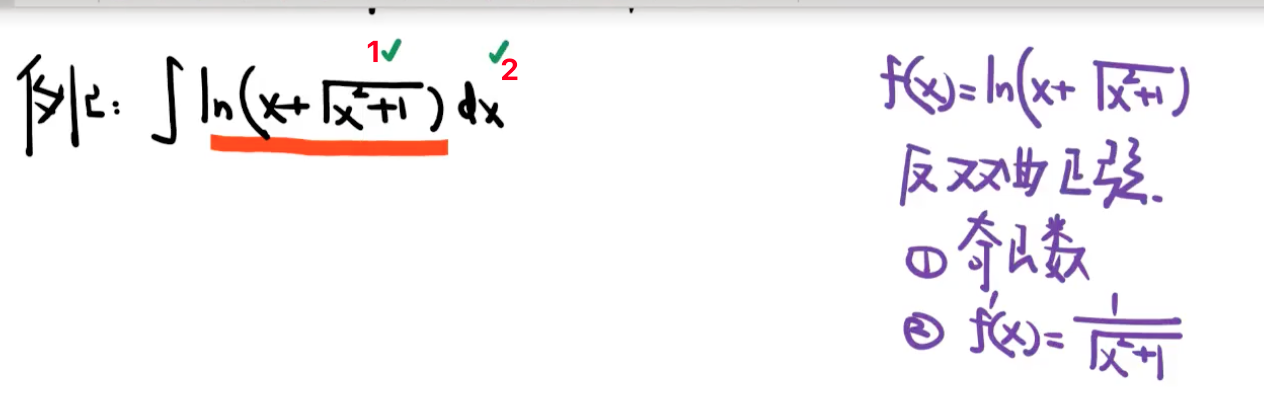 1✓ ✓2
例2: ∫ ln(x+√(x²+1)) dx
f(x)=ln(x+√(x²+1))
反双曲正弦.
① 奇函数
② f'(x)=1/√(x²+1)